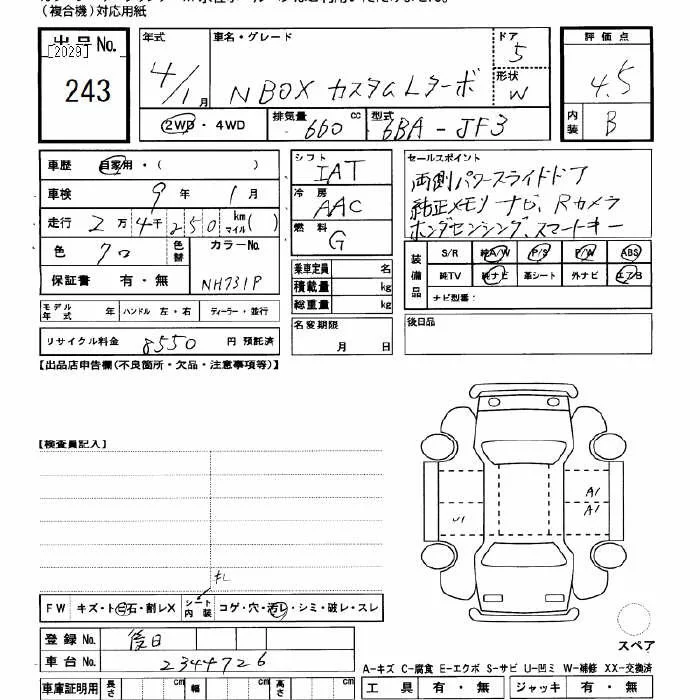 （複合機）対応用紙
出品 No.
[2029]
243
年式
4/1 月
車名・グレード
N BOX カスタム Lターボ
ドア
5
形状
W
評価点
4.5
内装
B
2WD ・ 4WD
排気量
660 cc
型式
6BA - JF3
車歴 自家用・( )
車検 9 年 1 月
走行 2 万 4 千 250 km マイル ( )
色 クロ
色替
カラーNo.
NH731P
保証書 有・無
モデル年式 年
ハンドル 左・右
ディーラー・並行
リサイクル料金 8550 円 預託済
シフト
IAT
冷房
AAC
燃料
G
乗車定員 名
積載量 kg
総重量 kg
名変期限
月 日
セールスポイント
両側パワースライドドア
純正メモリナビ、Rカメラ
ホンダセンシング、スマートキー
装備品
S/R 純A/W P/S P/W ABS
純TV 純ナビ 革シート 外ナビ エアB
ナビ型番：
後日品
【出品店申告欄(不良箇所・欠品・注意事項等)】
【検査員記入】
A1
A1
U1
キレ
FW キズ・ト石・割レX
シート内装
コゲ・穴・汚レ・シミ・破レ・スレ
登録 No. 後日
車台 No. 2344726
車庫証明用 長さ cm 幅 cm 高さ cm
スペア
A-キズ C-腐食 E-エクボ S-サビ U-凹ミ W-補修 XX-交換済
工具 有・無 ジャッキ 有・無